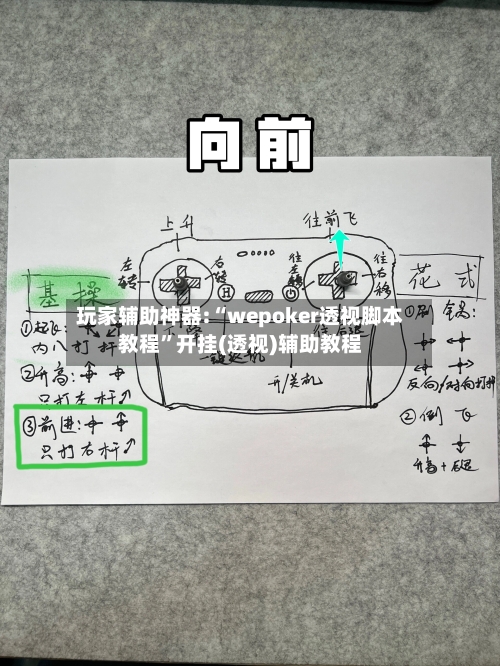 向前
上升
往前飞
左转
右转
往左移
往右移
H
基操
花式
玩家辅助神器:“wepoker透视脚本
教程”开挂(透视)辅助教程
①起飞:
内八打杆
②升高:
只打左杆
③前进:
只打右杆
开/关机
①刷锅:
反向/对向打杆
②倒飞
升高+后退